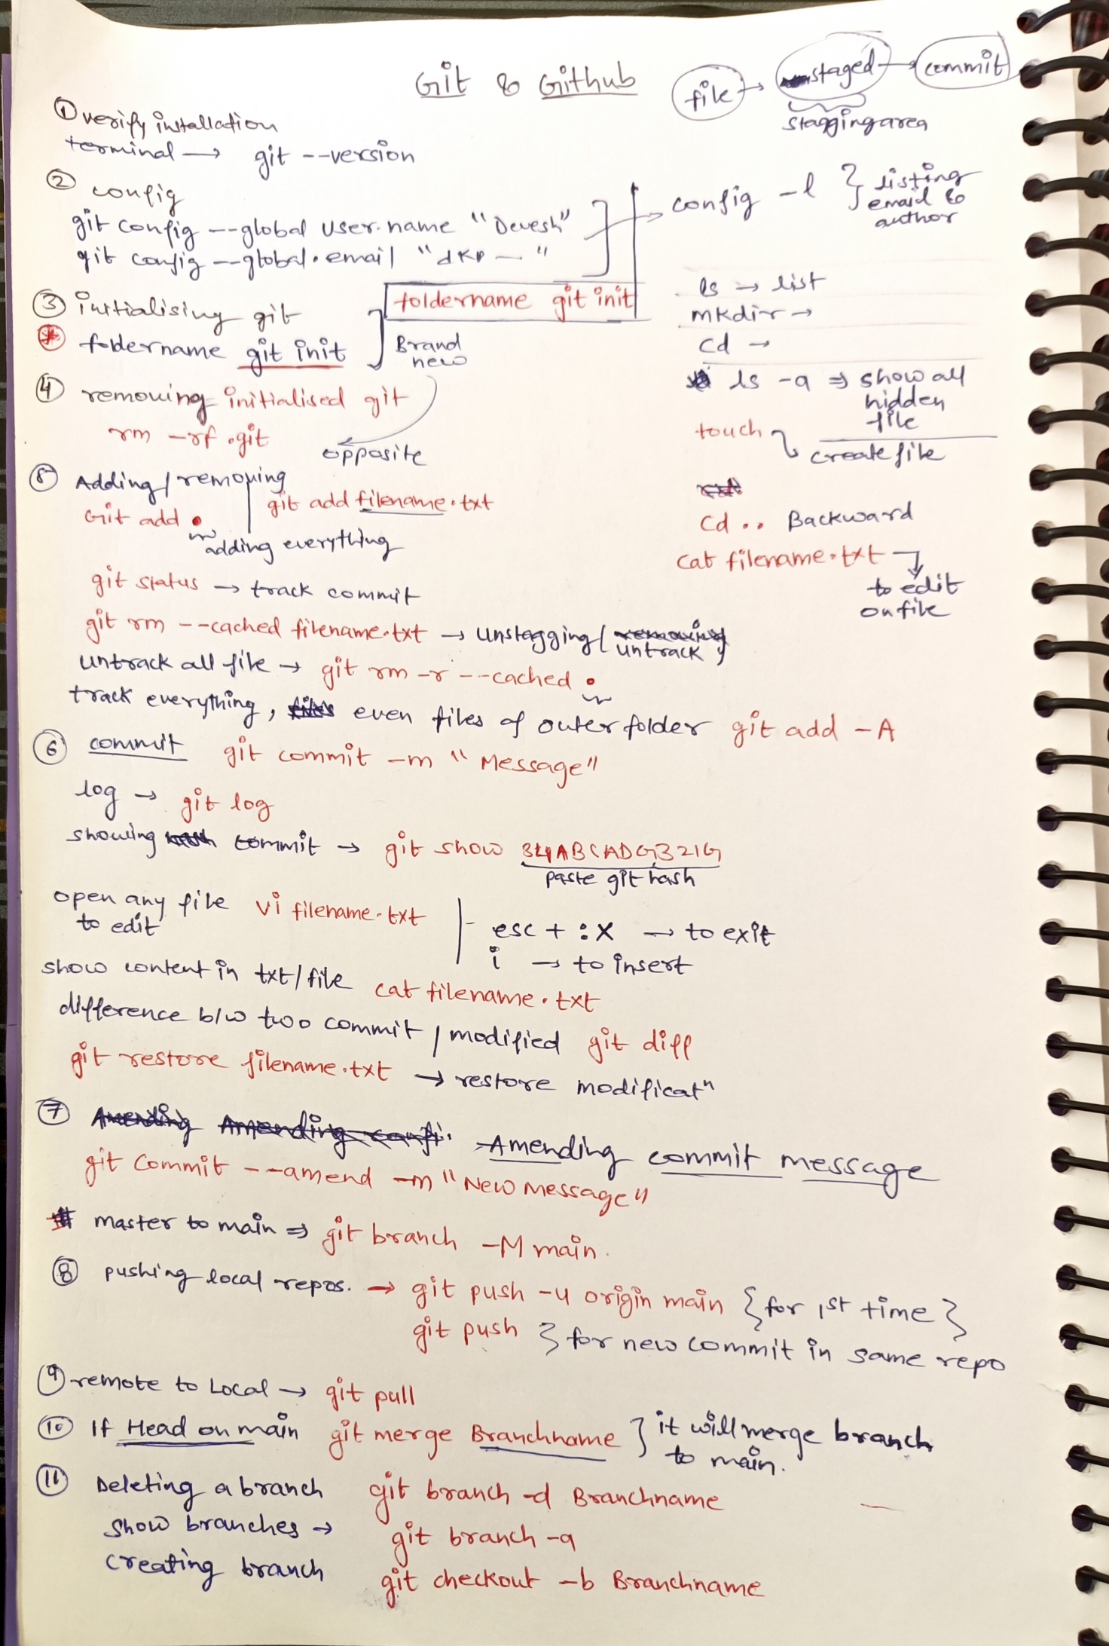 Git & Github
file → staged → commit
staggingarea
① verify installation
terminal → git --version
② config
git config --global user.name "Devesh"
git config --global.email "dkp — "
→ config -l } listing
email &
author
③ initialising git
foldername git init
foldername git init
Brand
new
ls → list
mkdir →
cd →
ls -a ⇒ show all
hidden
file
touch
create file
cd .. Backward
cat filename.txt
to edit
on file
④ removing initialised git
rm -rf .git
opposite
⑤ Adding/removing
Git add .
git add filename.txt
adding everything
git status → track commit
git rm --cached filename.txt → unstagging/
untrack
untrack all file → git rm -r --cached .
track everything, even files of outer folder git add -A
⑥ commit git commit -m "Message"
log → git log
showing commit → git show 34ABCADG321G
paste git hash
open any file vi filename.txt
to edit
esc + :x → to exit
i → to insert
show content in txt/file cat filename.txt
difference b/w two commit / modified git diff
git restore filename.txt → restore modificatⁿ
⑦ Amending commit message
git commit --amend -m "New Message"
master to main ⇒ git branch -M main.
⑧ pushing local repos. → git push -u origin main {for 1st time}
git push } for new commit in same repo
⑨ remote to Local → git pull
⑩ If Head on main git merge Branchname } it will merge branch
to main.
⑪ Deleting a branch git branch -d Branchname
show branches → git branch -a
creating branch git checkout -b Branchname